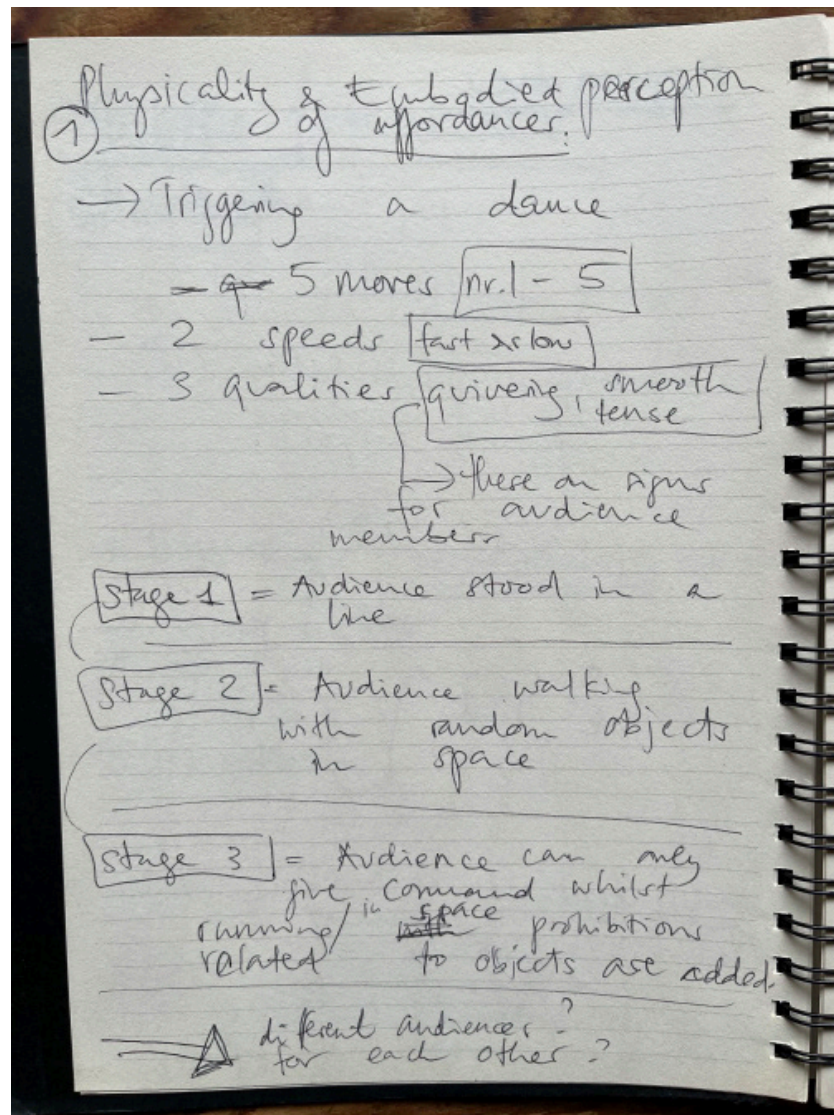 Physicality & Embodied perception
① of affordances:
→ Triggering a dance
- 5 moves nr.1 - 5
- 2 speeds fast & slow
- 3 qualities quivering, smooth
tense
→ these are signs
for audience
members
Stage 1 = Audience stood in a
line
Stage 2 = Audience walking
with random objects
in space
Stage 3 = Audience can only
give command whilst
running/ in space prohibitions
related to objects are added.
different audiences?
for each other?